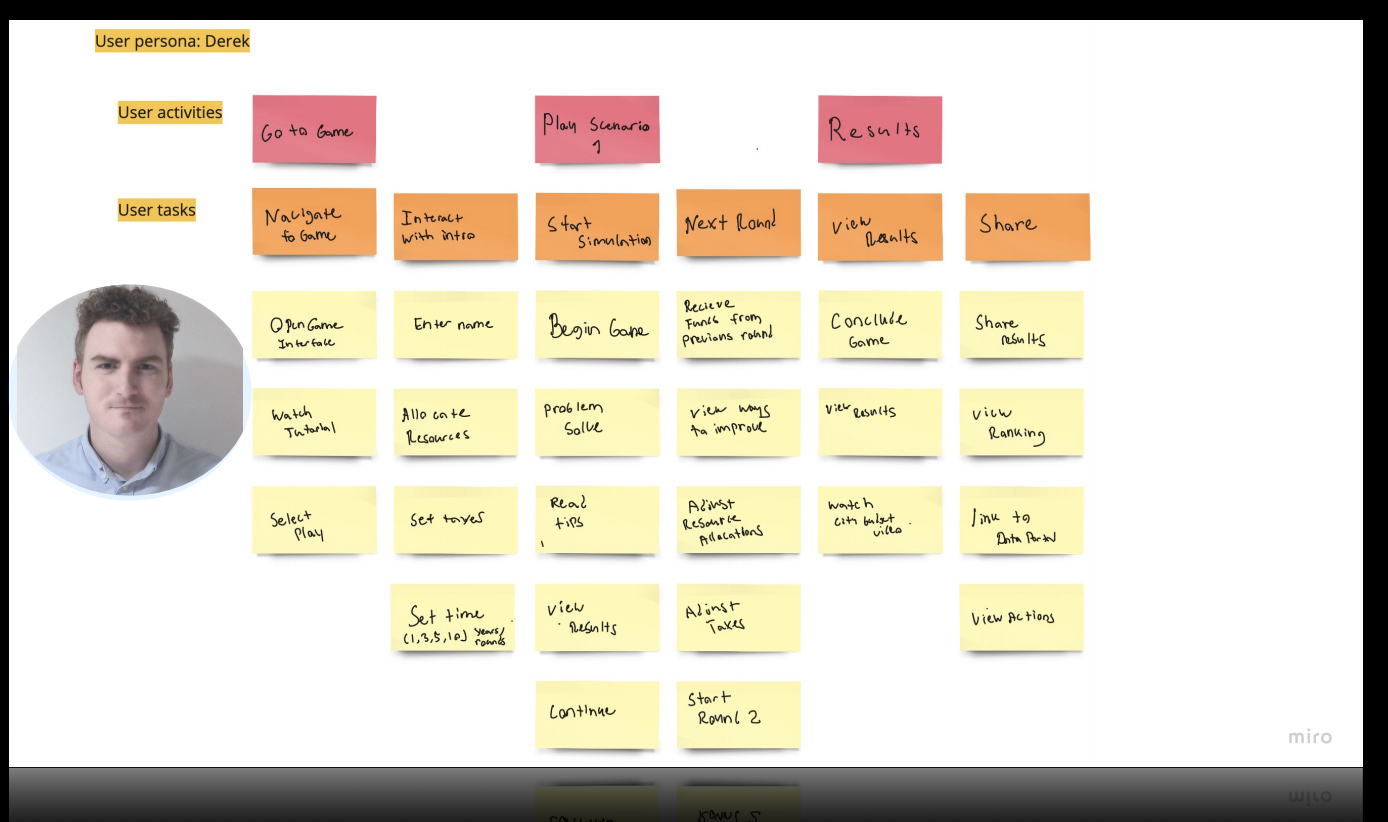 User persona: Derek
User activities
Go to Game
Play Scenario
1
Results
User tasks
Navigate
to Game
Interact
with intro
Start
Simulation
Next Round
View
Results
Share
Open Game
Interface
Enter name
Begin Game
Recieve
Funds from
previous round
Conclude
Game
Share
results
Watch
Tutorial
Allocate
Resources
Problem
Solve
View ways
to improve
View Results
View
Ranking
Select
Play
Set taxes
Read
tips
Adjust
Resource
Allocations
Watch
city budget
video
link to
Data Portal
Set time
(1,3,5,10) years/
rounds
View
Results
Adjust
Taxes
View Actions
Continue
Start
Round 2
miro